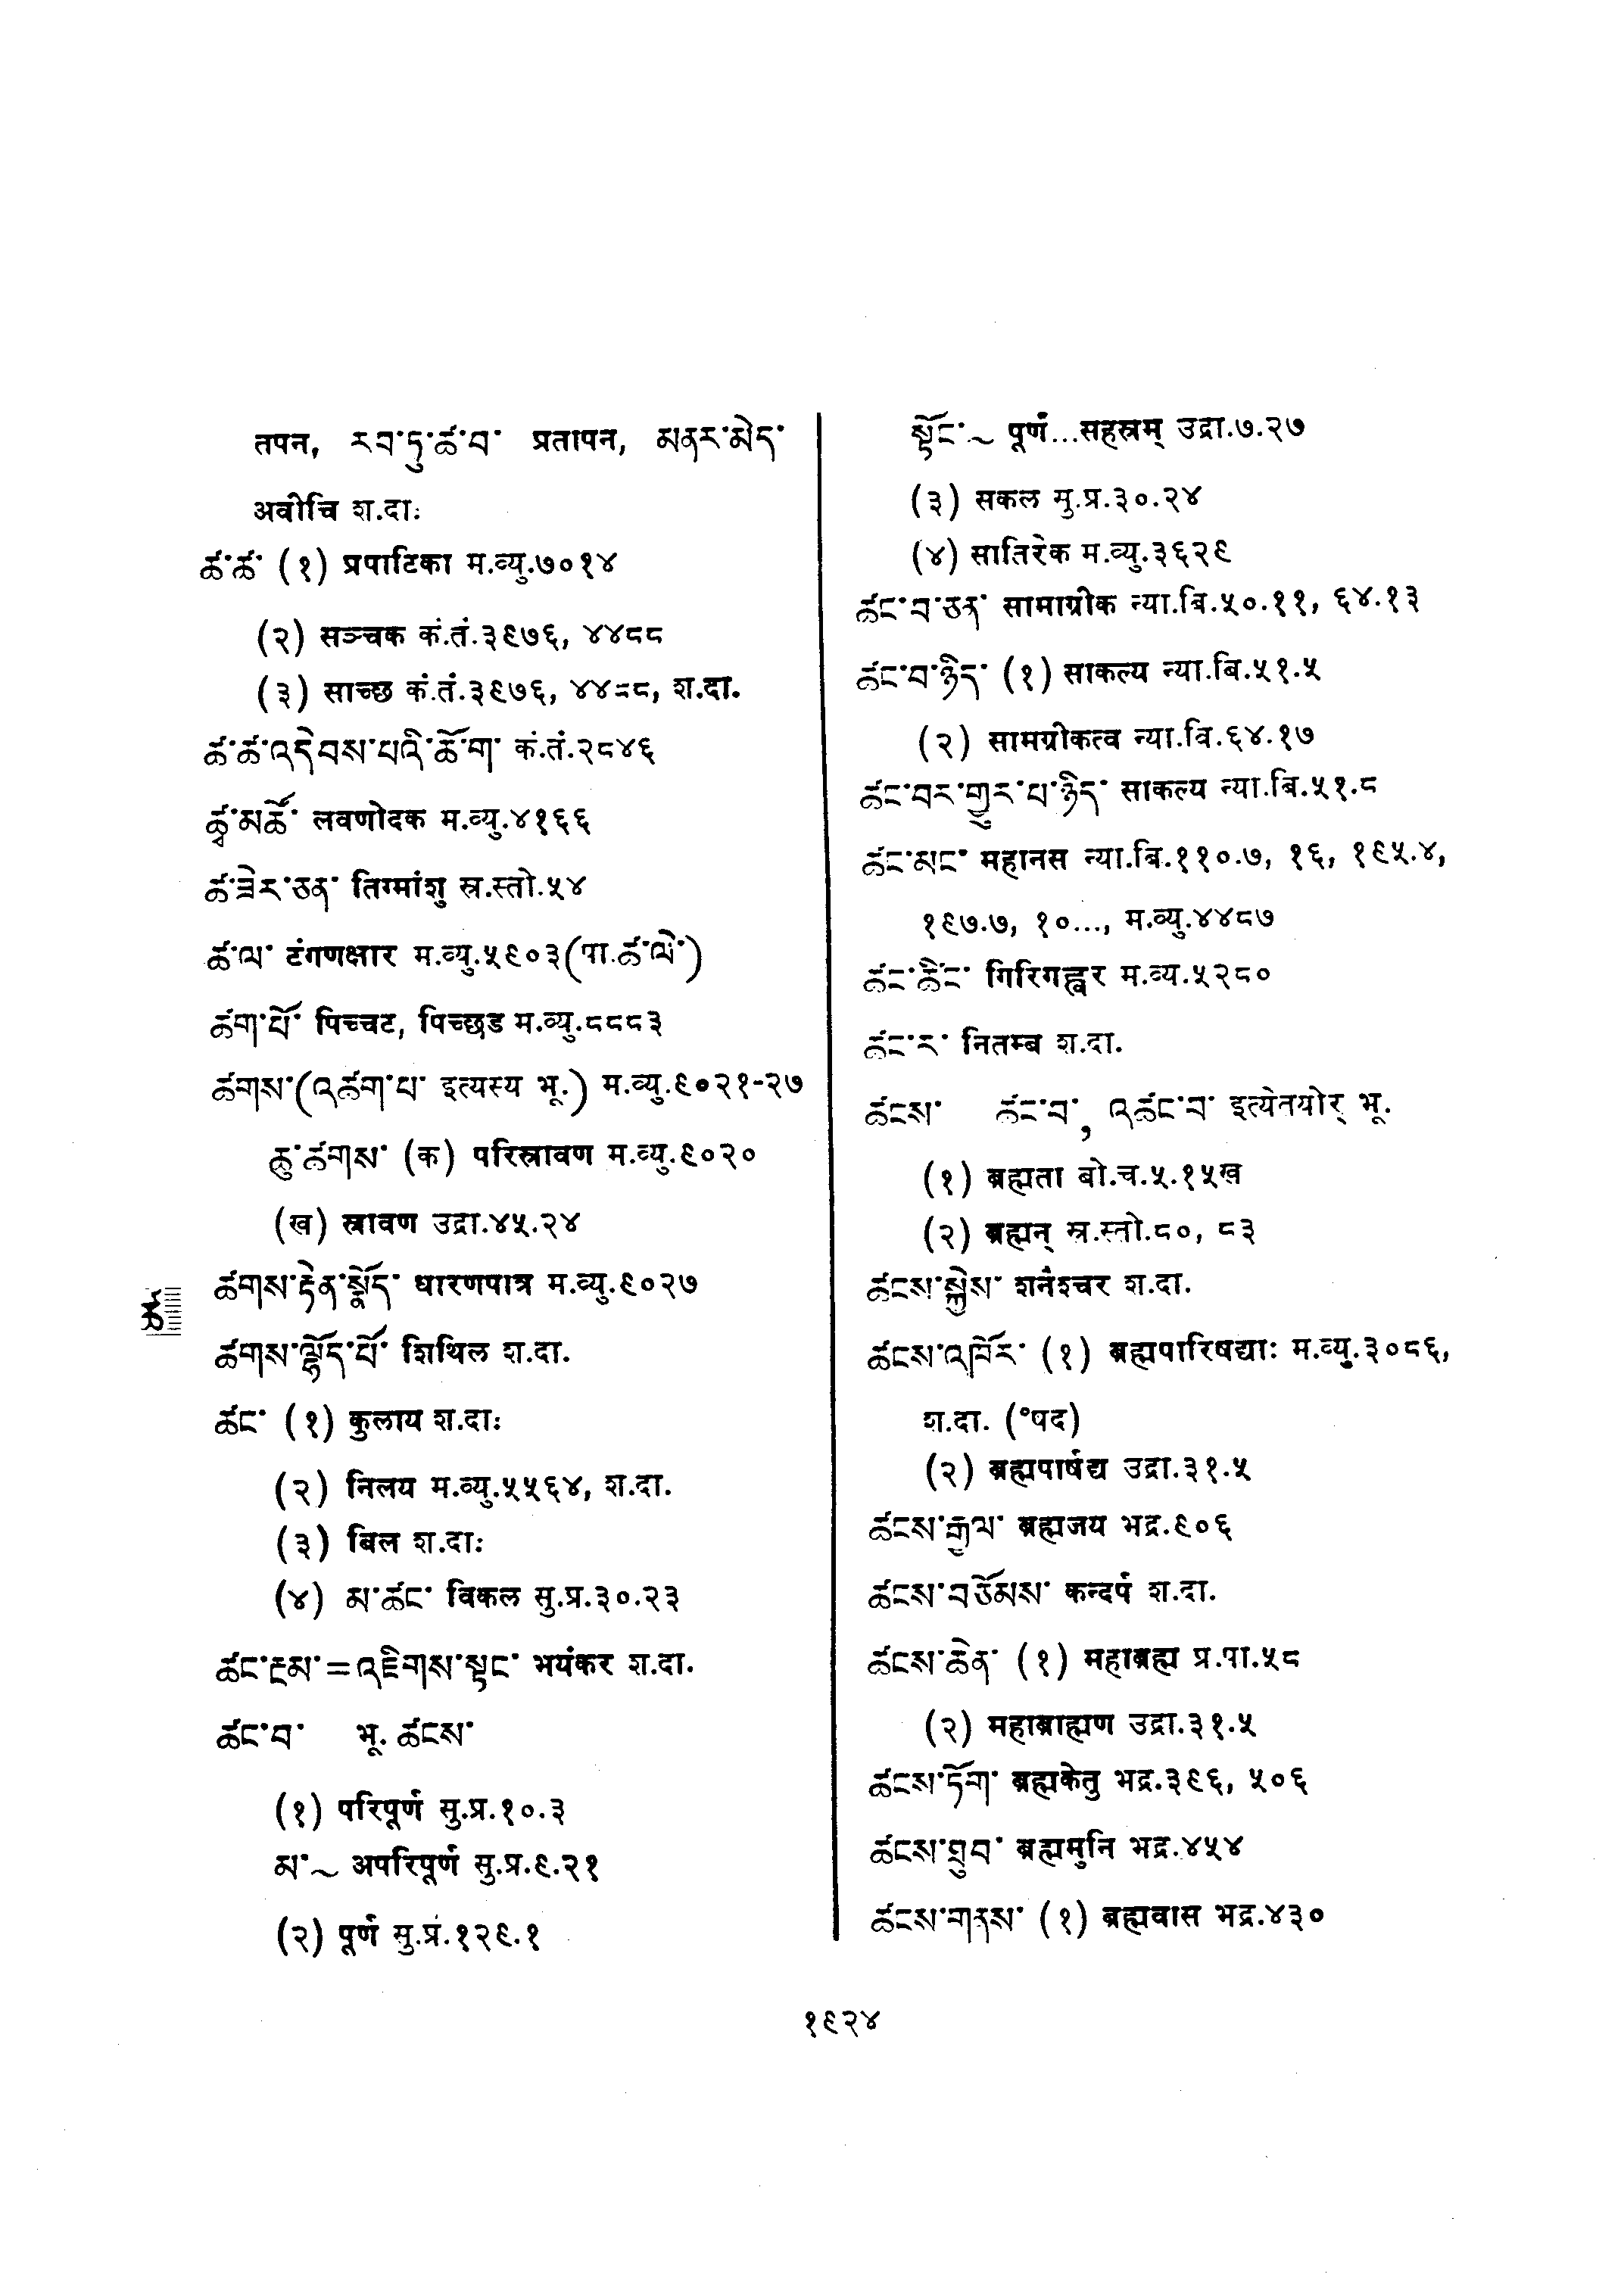 तपन, རབ་ཏུ་ཚ་བ་ प्रतापन, མནར་མེད་
अवीचि श.दाः
ཚ་ཚ་ (१) प्रपाटिका म.व्यु.७०१४
(२) सञ्चक कं.तं.३९७६, ४४८८
(३) साच्छ कं.तं.३९७६, ४४८८, श.दा.
ཚ་ཚ་འདེབས་པའི་ཆོ་ག་ कं.तं.२८४६
ཚྭ་མཚོ་ लवणोदक म.व्यु.४१६६
ཚ་ཟེར་ཅན་ तिग्मांशु स्र.स्तो.५४
ཚ་ལ་ टंगणक्षार म.व्यु.५९०३(पा.ཚ་ལེ་)
ཚག་པོ་ पिच्चट, पिच्छड म.व्यु.८८८३
ཚགས་(འཚག་པ་ इत्यस्य भू.) म.व्यु.९०२१-२७
ཆུ་ཚགས་ (क) परिस्रावण म.व्यु.९०२०
(ख) स्रावण उद्रा.४५.२४
ཚགས་རྟེན་སྣོད་ धारणपात्र म.व्यु.९०२७
ཚགས་ལྷོད་པོ་ शिथिल श.दा.
ཚང་ (१) कुलाय श.दाः
(२) निलय म.व्यु.५५६४, श.दा.
(३) बिल श.दाः
(४) མ་ཚང་ विकल सु.प्र.३०.२३
ཚང་རྔམ་=འཇིགས་སྟང་ भयंकर श.दा.
ཚང་བ་ भू. ཚངས་
(१) परिपूर्ण सु.प्र.१०.३
མ་~ अपरिपूर्ण सु.प्र.९.२१
(२) पूर्ण सु.प्र.१२९.१
སྟོང་~ पूर्णं...सहस्रम् उद्रा.७.२७
(३) सकल मु.प्र.३०.२४
(४) सातिरेक म.व्यु.३६२९
ཚང་བ་ཅན་ सामाग्रीक न्या.बि.५०.११, ६४.१३
ཚང་བ་ཉིད་ (१) साकल्य न्या.बि.५१.५
(२) सामग्रीकत्व न्या.वि.६४.१७
ཚང་བར་གྱུར་པ་ཉིད་ साकल्य न्या.बि.५१.८
ཚང་མང་ महानस न्या.बि.११०.७, १६, १९५.४,
१९७.७, १०..., म.व्यु.४४८७
ཚང་ཚིང་ गिरिगह्वर म.व्य.५२८०
ཚང་ར་ नितम्ब श.दा.
ཚངས་ ཚང་བ་, འཚང་བ་ इत्येतयोर् भू.
(१) ब्रह्मता बो.च.५.१५ख
(२) ब्रह्मन् स्र.स्तो.८०, ८३
ཚངས་སྐྱེས་ शनंश्चर श.दा.
ཚངས་འཁོར་ (१) ब्रह्मपारिषद्याः म.व्यु.३०८६,
श.दा. (°षद)
(२) ब्रह्मपार्षद्य उद्रा.३१.५
ཚངས་རྒྱལ་ ब्रह्मजय भद्र.९०६
ཚངས་བཅོམས་ कन्दर्प श.दा.
ཚངས་ཆེན་ (१) महाब्रह्म प्र.पा.५८
(२) महाब्राह्मण उद्रा.३१.५
ཚངས་ཏོག་ ब्रह्मकेतु भद्र.३९६, ५०६
ཚངས་ཐུབ་ ब्रह्ममुनि भद्र.४५४
ཚངས་གནས་ (१) ब्रह्मवास भद्र.४३०
ཚ
१९२४